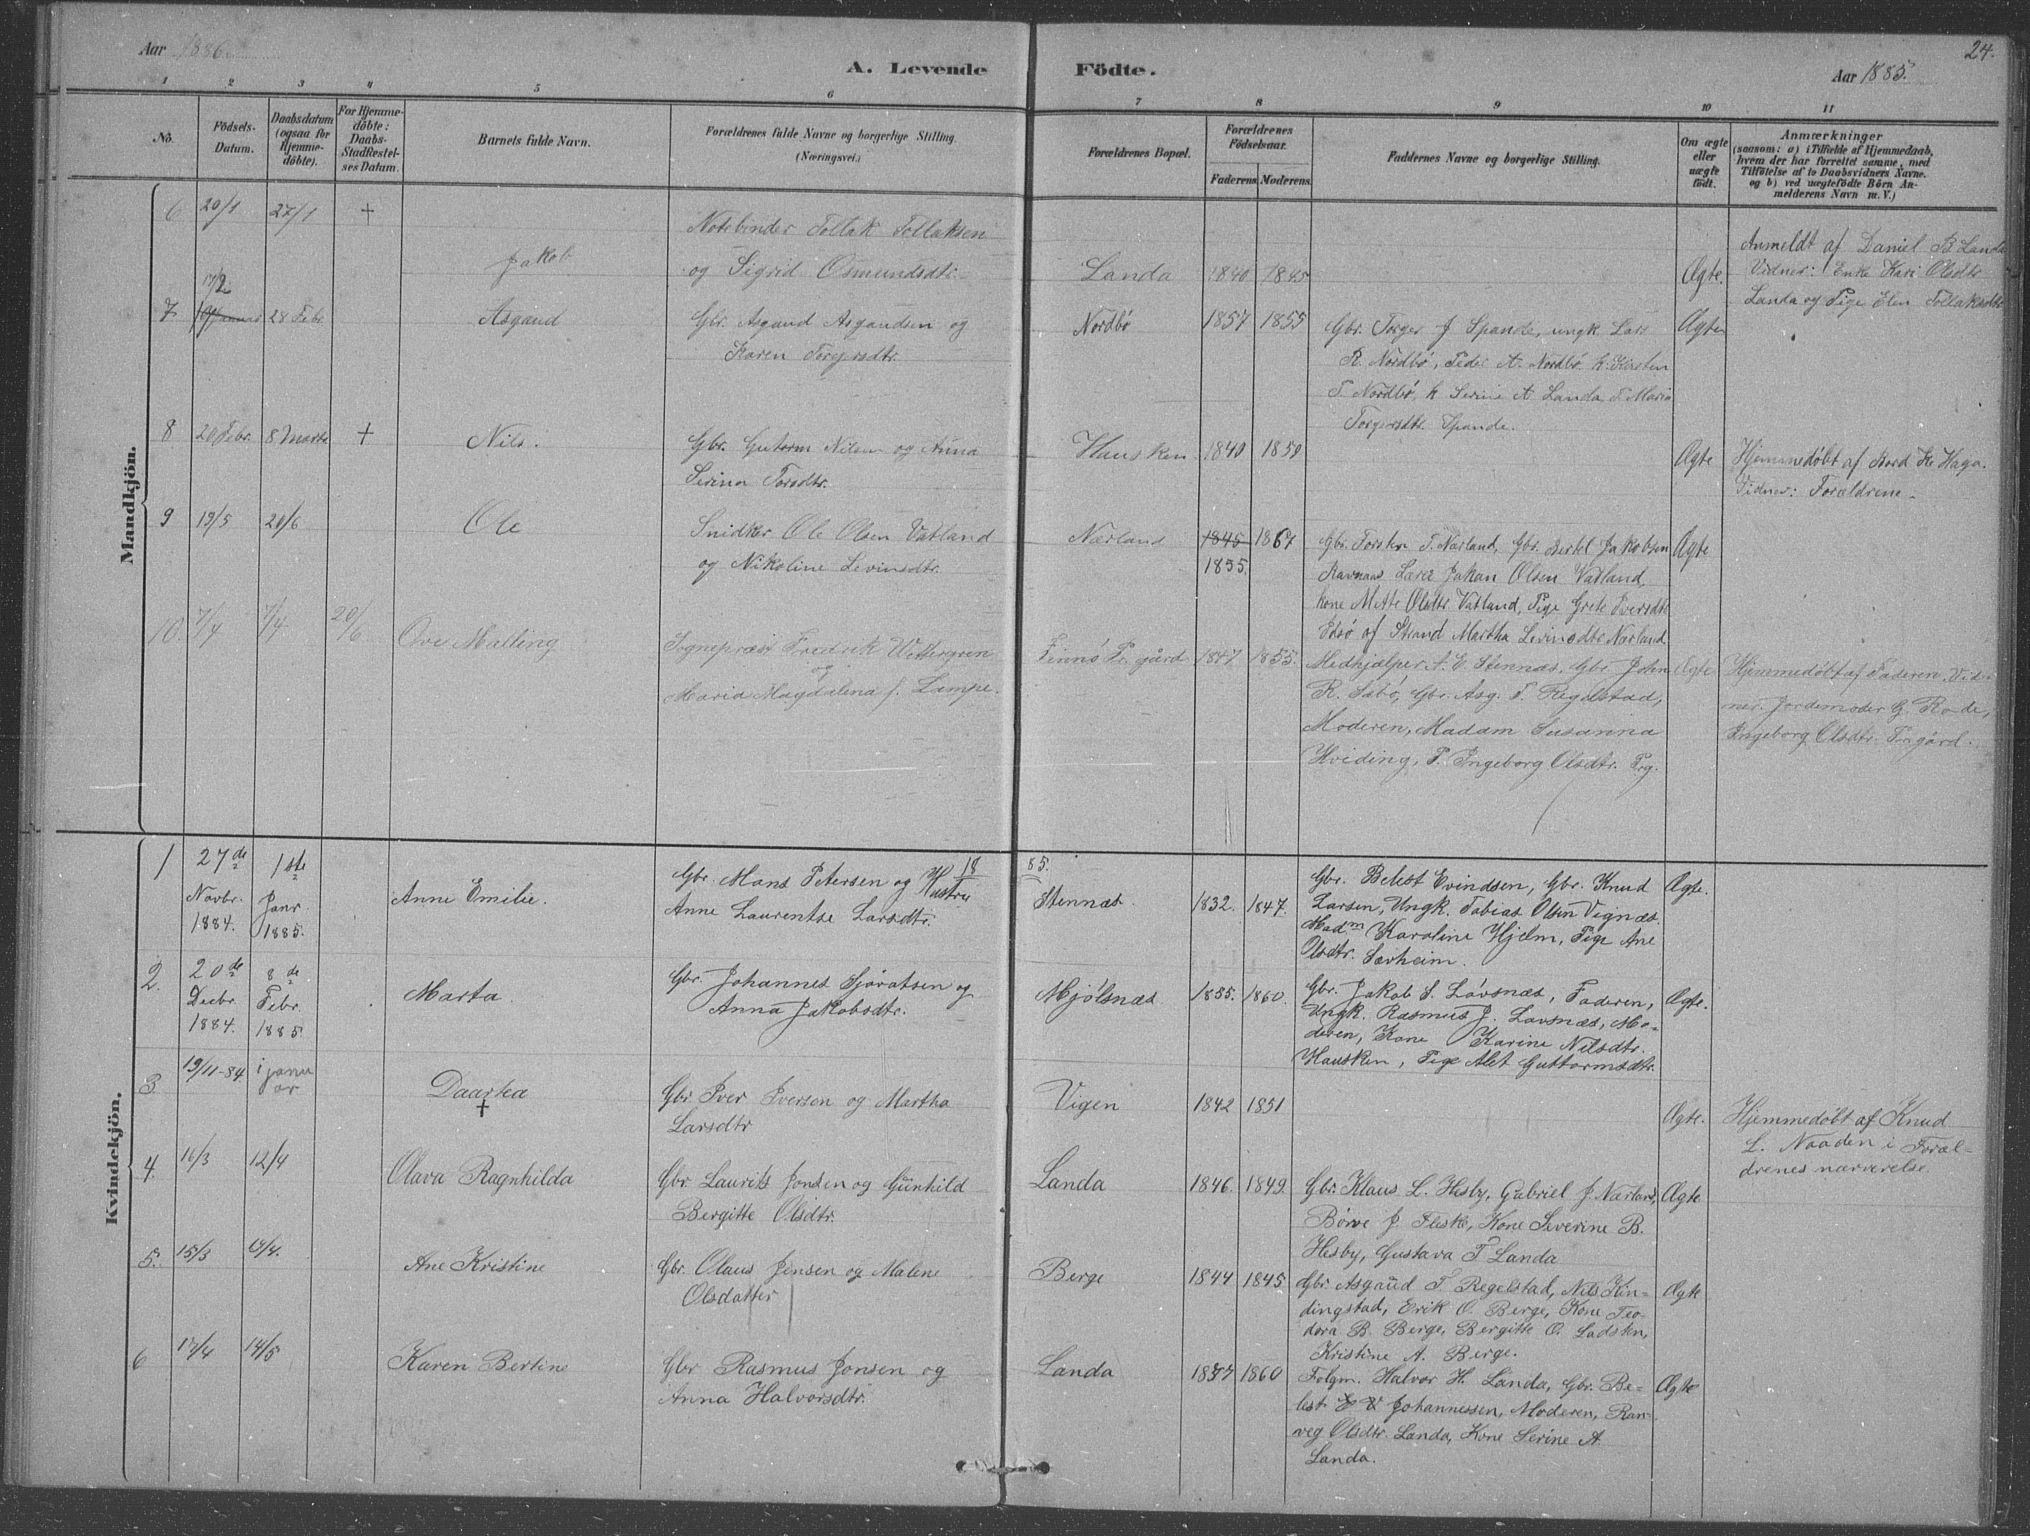 Aar 1886.
A. Levende Födte.
24.
Aar 1885.
1 2 3 4 5 6 7 8 9 10 11
No.
Födsels-
Datum.
Daabsdatum
(ogsaa for
Hjemme-
döbte).
For Hjemme-
döbte:
Daabs-
Stadfæstel-
ses Datum.
Barnets fulde Navn.
Forældrenes fulde Navne og borgerlige Stilling.
(Næringsvei.)
Forældrenes Bopæl.
Forældrenes
Födselsaar.
Faderens. Moderens.
Faddernes Navne og borgerlige Stilling.
Om ægte
eller
uægte
födt.
Anmærkninger
(saasom: a) i Tilfælde af Hjemmedaab,
hvem der har forrettet samme, med
Tilföielse af to Daabsvidners Navne.
og b) ved uægtefödte Börn An-
melderens Navn m. V.)
Mandkjön.
6 20/1 27/1 +
Jakob
Notebinder Tollak Tollaksen
og Sigrid Osmundsdtr.
Landa 1840 1845
Ægte.
Anmeldt af Daniel B Landa
Vidner: Enke Kari Olsdtr
Landa og Pige Elen Tollaksdtr
7 17/2 28 Febr
Asgaud
Gbr. Asgaud Asgaudsen og
Karen Torgersdtr.
Nordbø 1857 1855
Gbr. Torger J Spande, ungk Lars
R. Nordbø, Peder A. Nordbø. K. Kirsten
T. Nordbø, K Serine A Landa P. Maria
Torgersdtr Spande.
Ægte
8 20 Febr. 8 Marts +
Nils.
Gbr. Gutorm Nilsen og Anna
Serina Torsdtr.
Hausken 1840 1850
Ægte
Hjemmedøbt af Bord K. Haga.
Vidner: Forældrene.
9 19/5 20/6
Ole
Snidker Ole Olsen Vatland
og Nikoline Levinsdtr.
Nærland 1845 1867
1855.
Gbr. Torsten T. Nærland, Gbr. Bertel Jakobsen
Ravnaas Lærer Johan Olsen Vatland,
kone Mette Olsdtr. Vatland, Pige Grete Iversdtr
af Strand Martha Levinsdtr Nærland
Ægte
10. 7/4 7/4 20/6
Ove Malling
Sognepræst Fredrik Wettergren
og
Maria Magdalena f. Lampe.
Finnø Pr. gård 1847. 1855.
Medhjælper A. E. Stennæs, Gbr. Josten
R. Sæbø, Gbr. Asg. T. Regelstad,
Moderen, Madam Susanna
Hviding, P. Ingeborg Olsdtr. Prg.
Ægte
Hjemmedøbt af Faderen. Vid-
ner. Jordemoder G. Rode,
Ingeborg Olsdtr. Prgård.
Kvindekjön.
1885.
1 27de Novbr. 1884. 1ste Janr. 1885.
Anne Emilie.
Gbr. Mons Petersen og Hustru
Anne Laurentse Larsdtr.
Stennæs. 1832. 1847.
Gbr. Belest Evindsen, Gbr. Knud
Larsen, Ungk. Tobias Olsen Vignæs.
Madm Karoline Hjelm, Pige Ane
Olsdtr. Særheim.
Ægte.
2. 20de Decbr. 1884. 8de Febr. 1885.
Marta.
Gbr. Johannes Sjøratsen og
Anna Jakobsdtr.
Mjølsnæs. 1855. 1860.
Gbr. Jakob S. Løvsnæs, Faderen,
Ungk. Rasmus J. Løvsnæs, Mo-
deren, Kone Karine Nilsdtr.
Hausken, Pige Alet Guttormsdtr.
Ægte.
3. 19/11-84 i januar
Daartea
+
Gbr Iver Iversen og Martha
Larsdtr
Vigen 1842 1851
Ægte.
Hjemmedøbt af Knud
L. Naaden i Foræl-
drenes nærværelse.
4. 16/3 12/4
Olava Ragnhilda
Gbr Laurits Jonsen og Gunhild
Bergitte Olsdtr.
Landa 1846. 1849.
Gbr. Klaus L. Hesby, Gabriel J. Nærland,
Børve J. Fleske, Kone Severine B.
Hesby, Gustava T. Landa
Ægte
5. 15/3 12/4.
Ane Kristine
Gbr. Olaus Jensen og Malene
Olsdatter
Berge 1844 1845
Gbr Asgaud T. Regelstad, Nils Kin-
dingstad, Erik O. Berge, Kone Teo-
dora B. Berge, Bergitte O. Ladsten,
Kristine A. Berge.
Ægte
6 17/4 14/5
Karen Bertine
Gbr Rasmus Jonsen og
Anna Halvorsdtr.
Landa 1857 1860
Folgm. Halvor H. Landa, Gbr. Be-
lest Johannessen, Moderen, Ran-
veg Olsdtr. Landa, Kone Serine A.
Landa.
Ægte